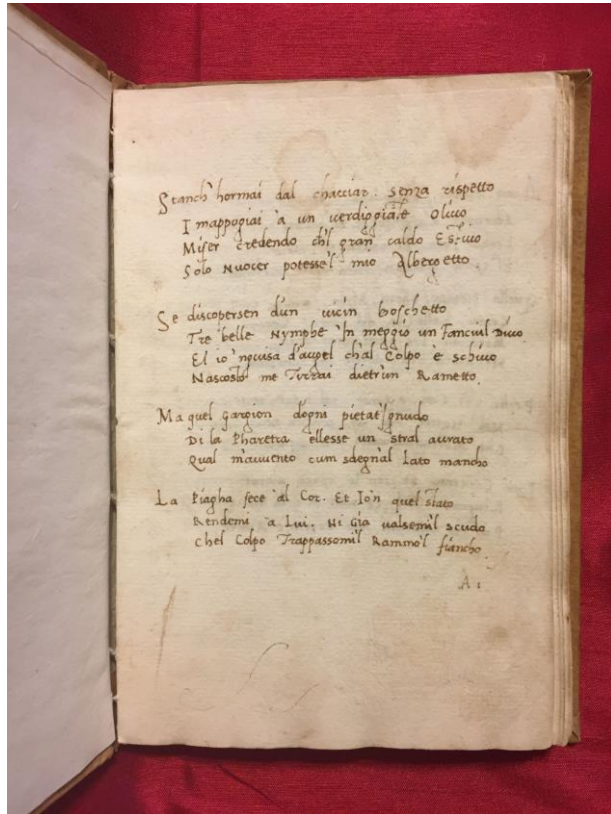 Stanch' hormai dal chacciar. Senza rispetto
I mappogiai 'a un verdiggiate Olivo
Miser credendo ch'l gran caldo Estivo
Solo Nuocer potesse'l mio Albergetto.
Se discopersen d'un vicin boschetto
Tre belle Nymphe In meggio un Fanciul Divo.
El io 'nguisa d'augel ch'al Colpo è schivo
Nascosto me Tirrai dietr'un Rametto.
Ma quel Gargion d'ogni pietat' Ignudo
Di la Pharetra ellesse un stral aurato
Qual m'avvento cum sdegn'al Lato mancho
La Piagha fece 'al Cor. Et Io'n quel stato
Rendemi 'a Lui. Ni Gia valsemi'l scudo
Chel Colpo Trappassomi'l Rammo'l fiancho.
A 1